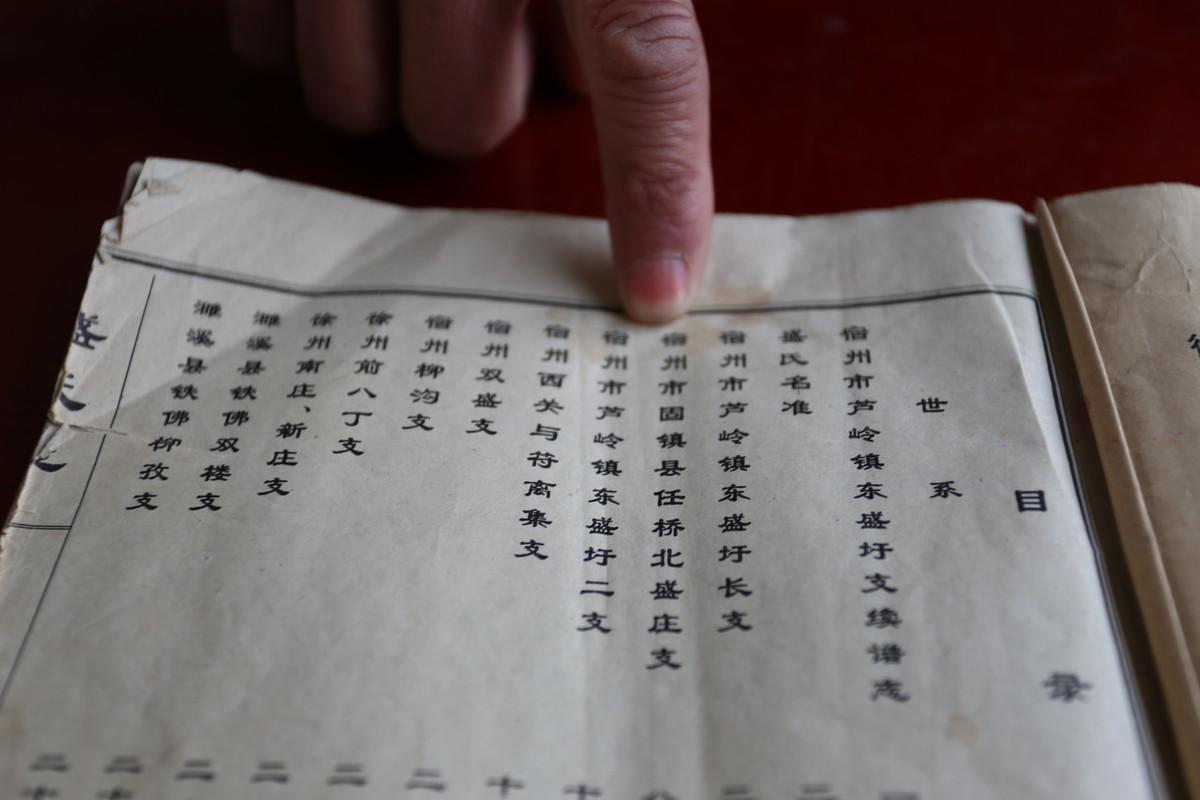 目录
世系
宿州市芦岭镇东盛圩支续谱志
盛氏名准
宿州市芦岭镇东盛圩长支
宿州市固镇县任桥北盛庄支
宿州市芦岭镇东盛圩二支
宿州西关与符离集支
宿州双盛支
宿州柳沟支
徐州前八丁支
徐州南庄、新庄支
濉溪县铁佛双楼支
濉溪县铁佛柳孜支